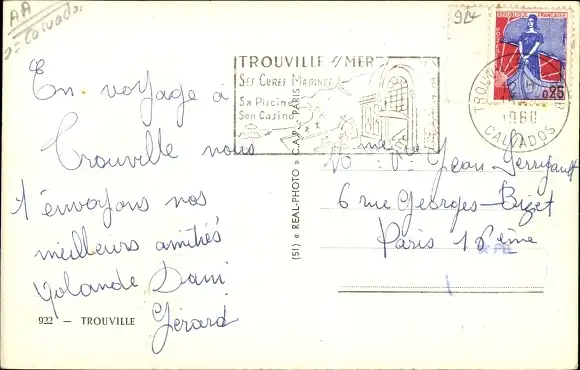 AA
Calvados
924
REPUBLIQUE FRANÇAISE
0,25
TROUVILLE S/MER
SES CURES MARINES
Sa Piscine
Son Casino
1960
CALVADOS
En voyage à
Trouville nous
t'envoyons nos
meilleurs amitiés
Yolande Dani
Gérard
922 — TROUVILLE
(51) « REAL-PHOTO » C.A.P. - PARIS
Jean
6 rue Georges-Bizet
Paris 16ème